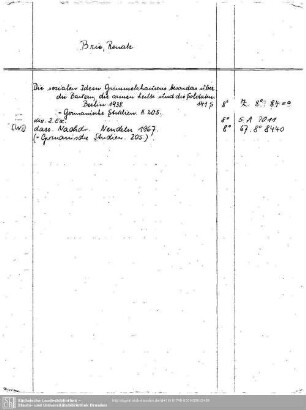 Brie, Renate
Die sozialen Ideen Grimmelshausens besonders über
die Bauern, die armen Leute und die Soldaten
Berlin 1938 8°
= Germanische Studien. H 205.
das. 2. Ex. 8°
dass. Nachdr. Nendeln 1967. 8° 67. 8° 8440
(= Germanische Studien. 205)
Sächsische Landesbibliothek –
Staats- und Universitätsbibliothek Dresden